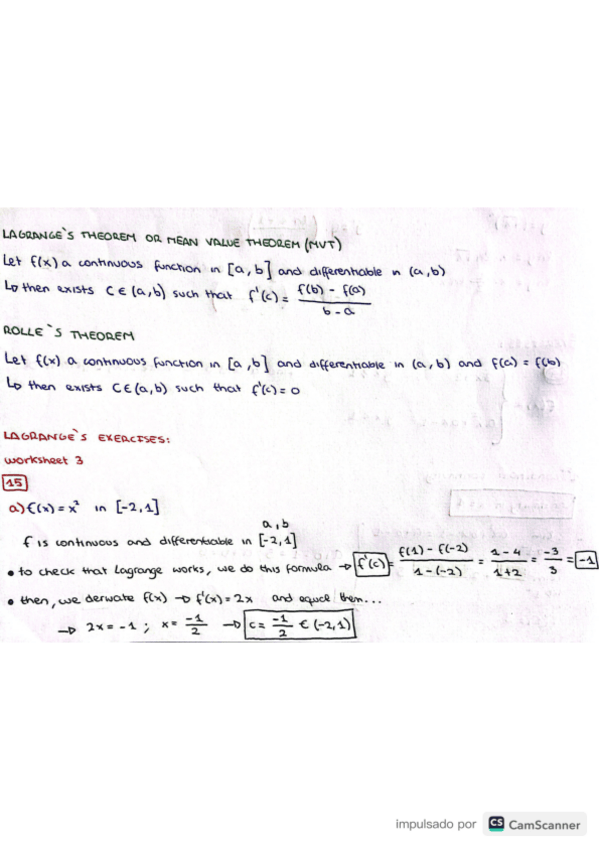 LAGRANGE`S THEOREM OR MEAN VALUE THEOREM (MVT)
Let f(x) a continuous function in [a, b] and differentiable in (a, b)
↳ then exists C ∈ (a, b) such that f'(c) = (f(b) - f(a)) / (b - a)
ROLLE`S THEOREM
Let f(x) a continuous function in [a, b] and differentiable in (a, b) and f(a) = f(b)
↳ then exists C ∈ (a, b) such that f'(c) = 0
LAGRANGE`S EXERCISES:
worksheet 3
15
a) f(x) = x² in [-2, 1]
a, b
f is continuous and differentiable in [-2, 1]
• to check that Lagrange works, we do this formula → f'(c) = (f(1) - f(-2)) / (1 - (-2)) = (1 - 4) / (1 + 2) = -3 / 3 = -1
• then, we derivate f(x) → f'(x) = 2x and equal them...
→ 2x = -1 ; x = -1/2 → c = -1/2 ∈ (-2, 1)
impulsado por CS CamScanner